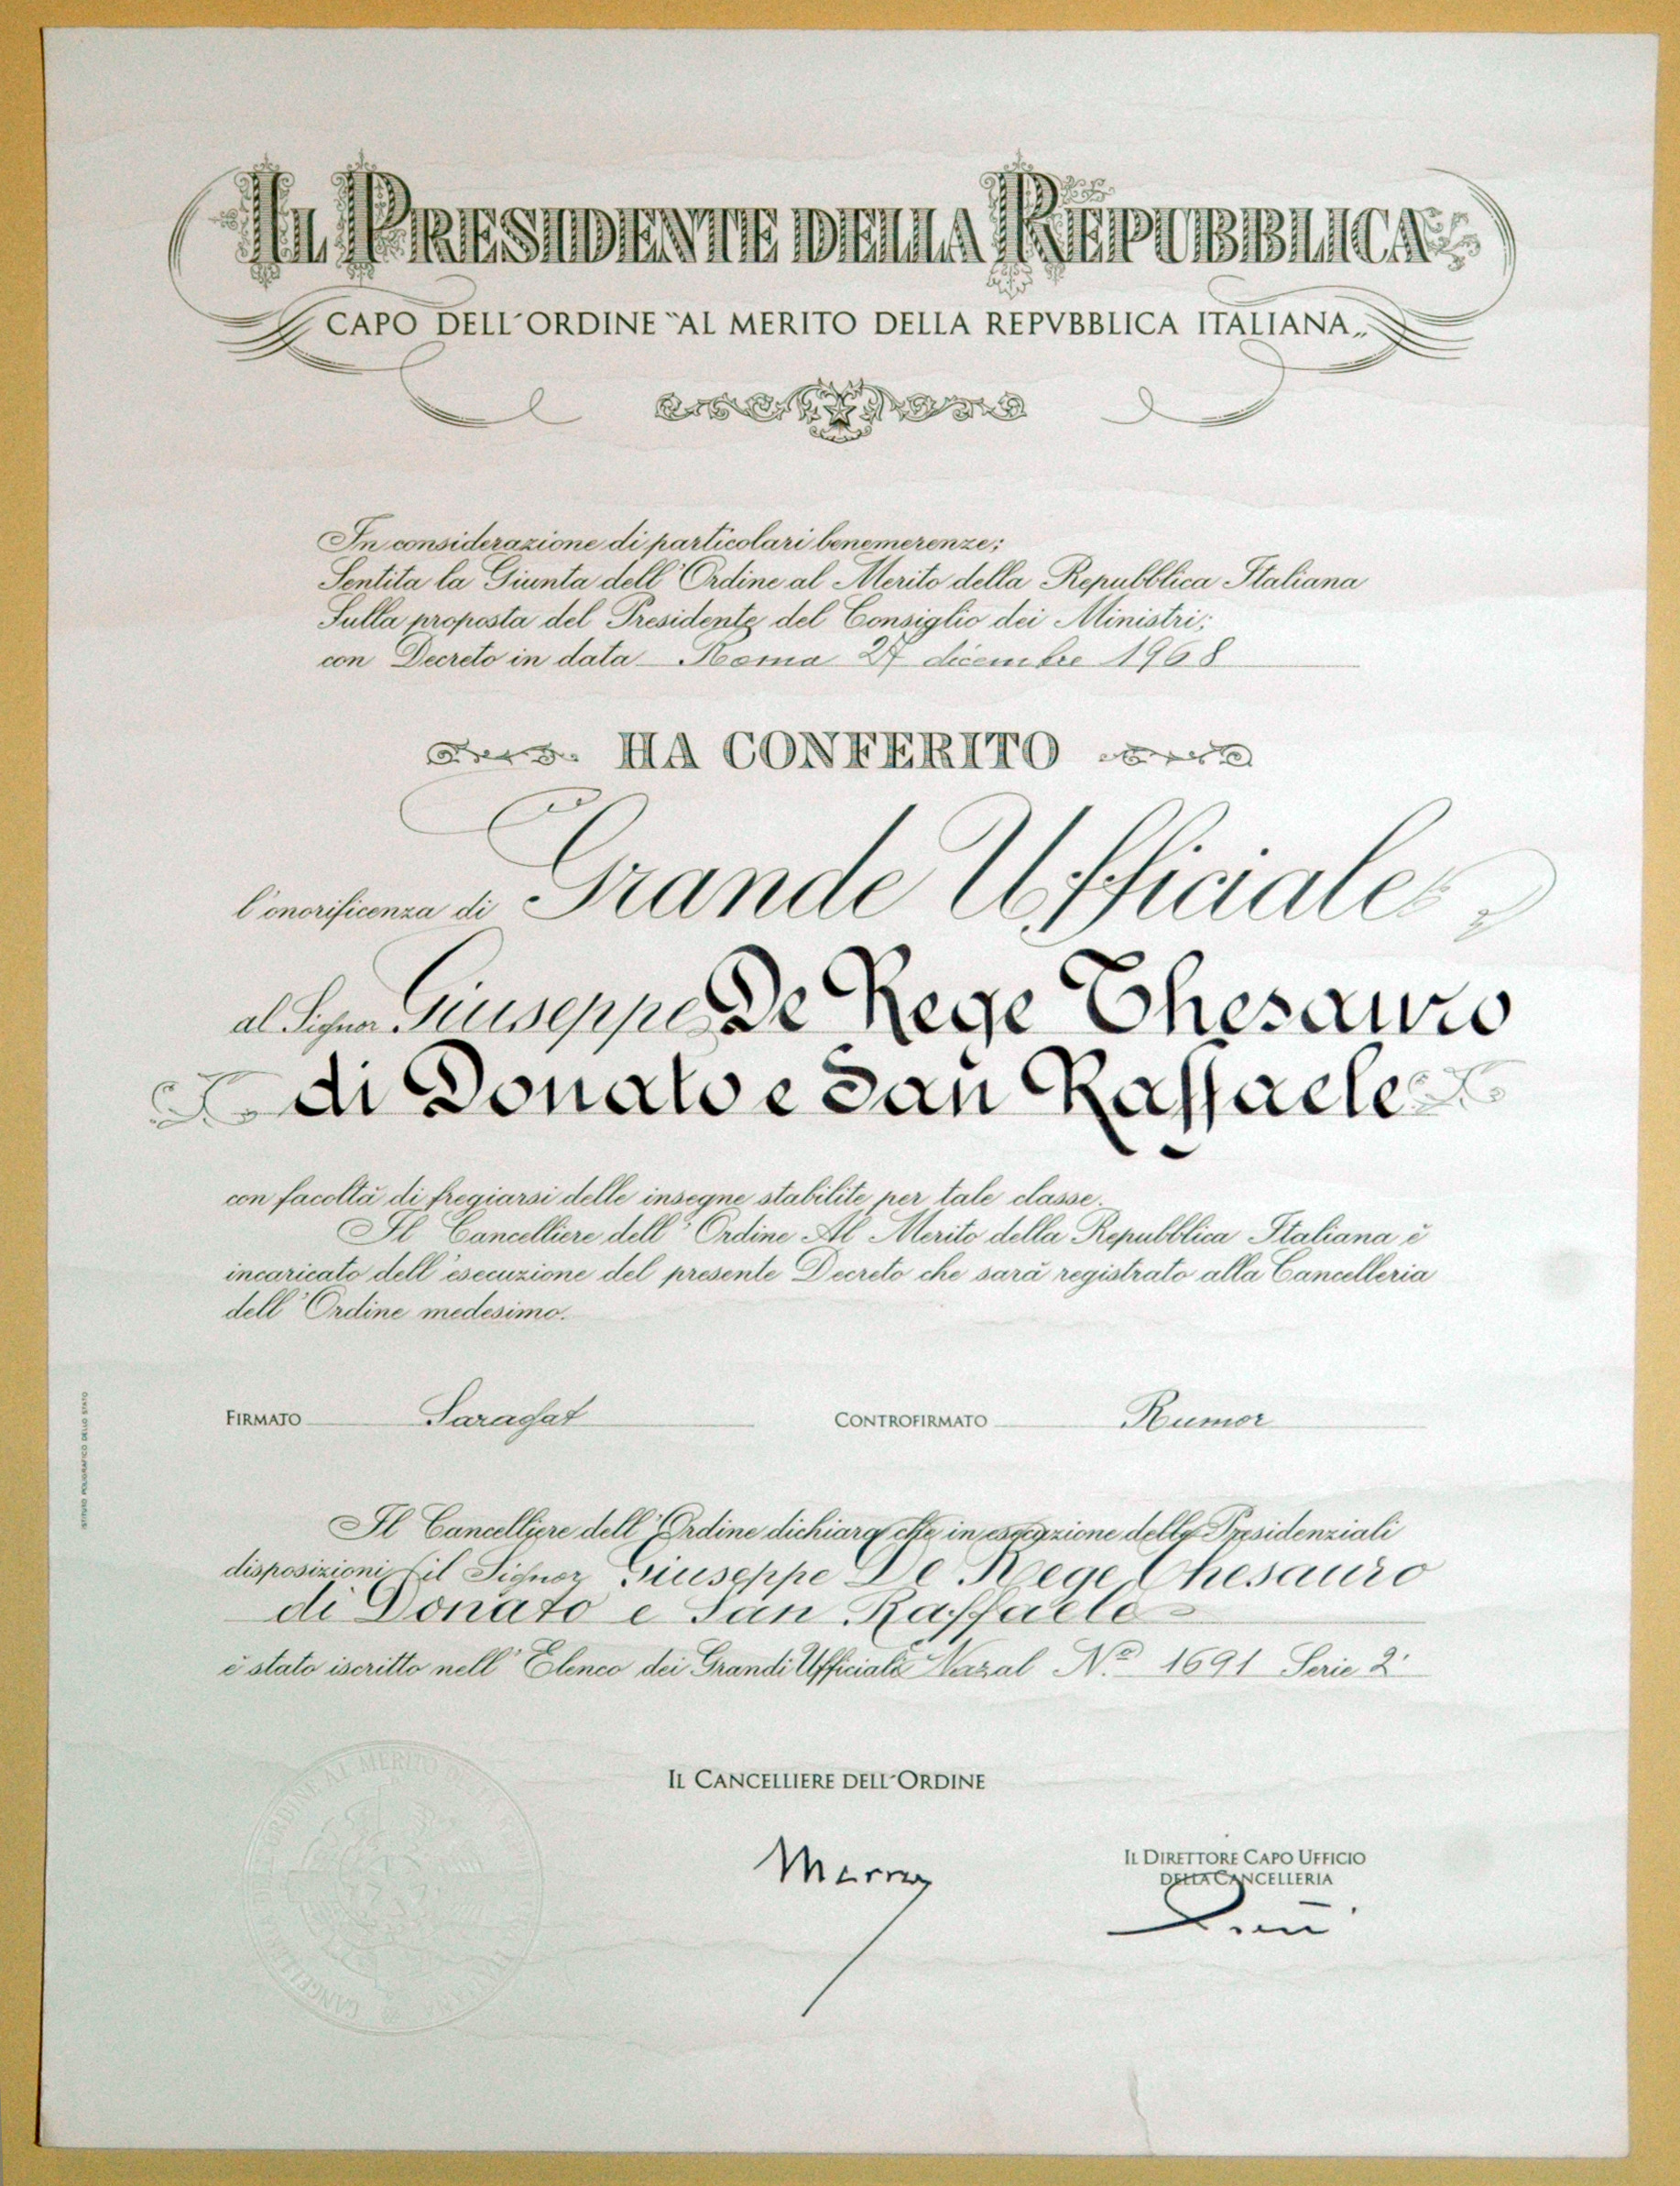 IL PRESIDENTE DELLA REPUBBLICA
CAPO DELL'ORDINE "AL MERITO DELLA REPVBBLICA ITALIANA„
In considerazione di particolari benemerenze;
Sentita la Giunta dell'Ordine al Merito della Repubblica Italiana
Sulla proposta del Presidente del Consiglio dei Ministri;
con Decreto in data Roma 27 dicembre 1968
HA CONFERITO
l'onorificenza di Grande Ufficiale
al Signor Giuseppe De Rege Thesauro
di Donato e San Raffaele
con facoltà di fregiarsi delle insegne stabilite per tale classe.
Il Cancelliere dell'Ordine Al Merito della Repubblica Italiana è
incaricato dell'esecuzione del presente Decreto che sarà registrato alla Cancelleria
dell'Ordine medesimo.
FIRMATO Saragat CONTROFIRMATO Rumor
Il Cancelliere dell'Ordine dichiara che in esecuzione delle Presidenziali
disposizioni il Signor Giuseppe De Rege Thesauro
di Donato e San Raffaele
è stato iscritto nell'Elenco dei Grandi Ufficiali Nazal Nº 1691 Serie 2ª
IL CANCELLIERE DELL'ORDINE
IL DIRETTORE CAPO UFFICIO
DELLA CANCELLERIA
ISTITUTO POLIGRAFICO DELLO STATO